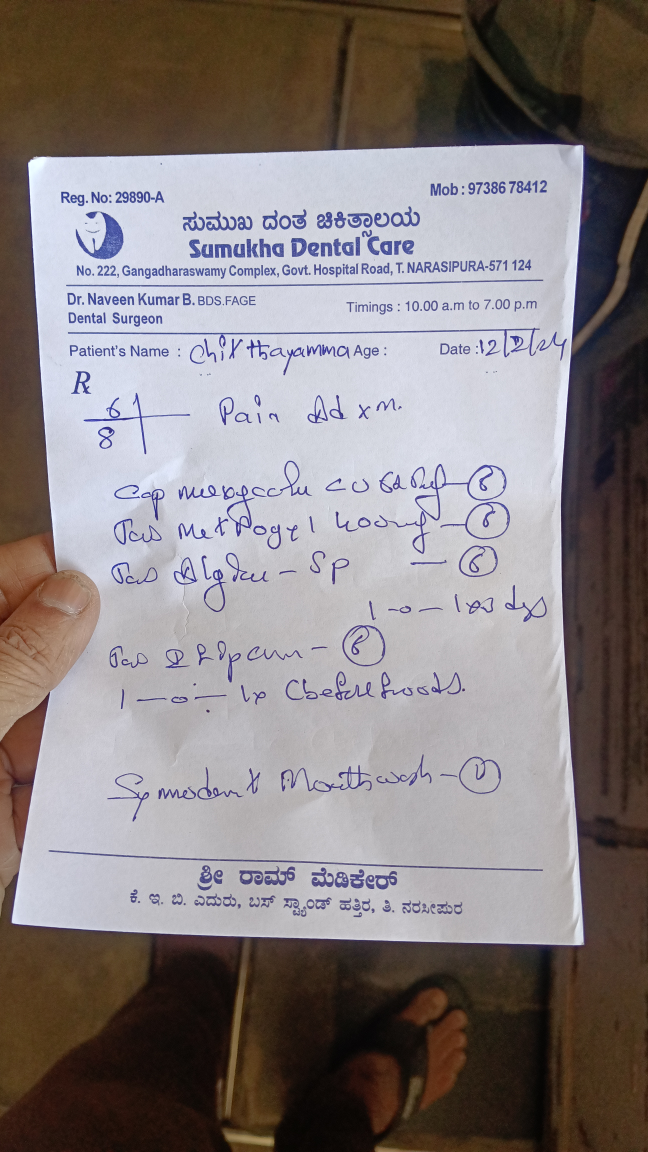 Reg. No: 29890-A
Mob : 97386 78412
ಸುಮುಖ ದಂತ ಚಿಕಿತ್ಸಾಲಯ
Sumukha Dental Care
No. 222, Gangadharaswamy Complex, Govt. Hospital Road, T. NARASIPURA-571 124
Dr. Naveen Kumar B. BDS.FAGE
Timings : 10.00 a.m to 7.00 p.m
Dental Surgeon
Patient's Name : Chikthayamma Age : Date : 12/2/24
Rx
6
8
Pain
Cap - 6
Tab Metrogyl 400mg - 6
Tab - SP - 6
1-0-1 x 3 dys
Tab - 6
1-0-1 x (before food).
Mouthwash - 1
ಶ್ರೀ ರಾಮ್ ಮೆಡಿಕೇರ್
ಕೆ. ಇ. ಬಿ. ಎದುರು, ಬಸ್ ಸ್ಟ್ಯಾಂಡ್ ಹತ್ತಿರ, ತಿ. ನರಸೀಪುರ